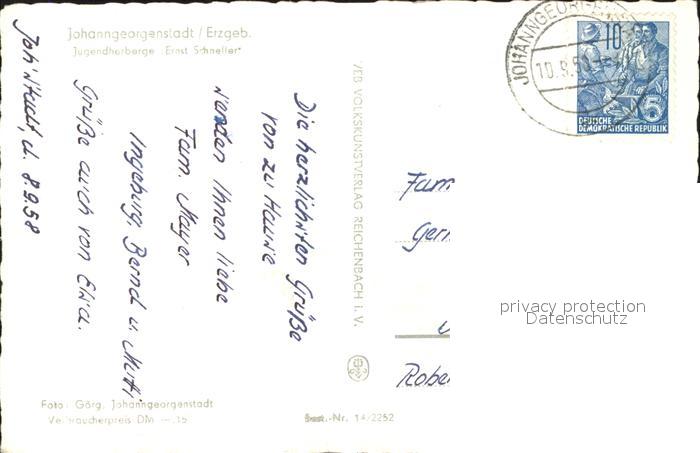 Johanngeorgenstadt / Erzgeb.
Jugendherberge „Ernst Schneller"
Joh'stadt, d. 8.9.58
Die herzlichsten Grüße
von zu Hause
senden Ihnen liebe
Fam. Mayer
Ingeburg, Bernd u. Mutti
Grüße auch von
Foto: Görg, Johanngeorgenstadt
Verbraucherpreis DM
VEB VOLKSKUNSTVERLAG REICHENBACH i. V.
Best.-Nr. 14/2252
10
5
DEUTSCHE
DEMOKRATISCHE REPUBLIK
Fam
Ger
Robe
privacy protection
Datenschutz